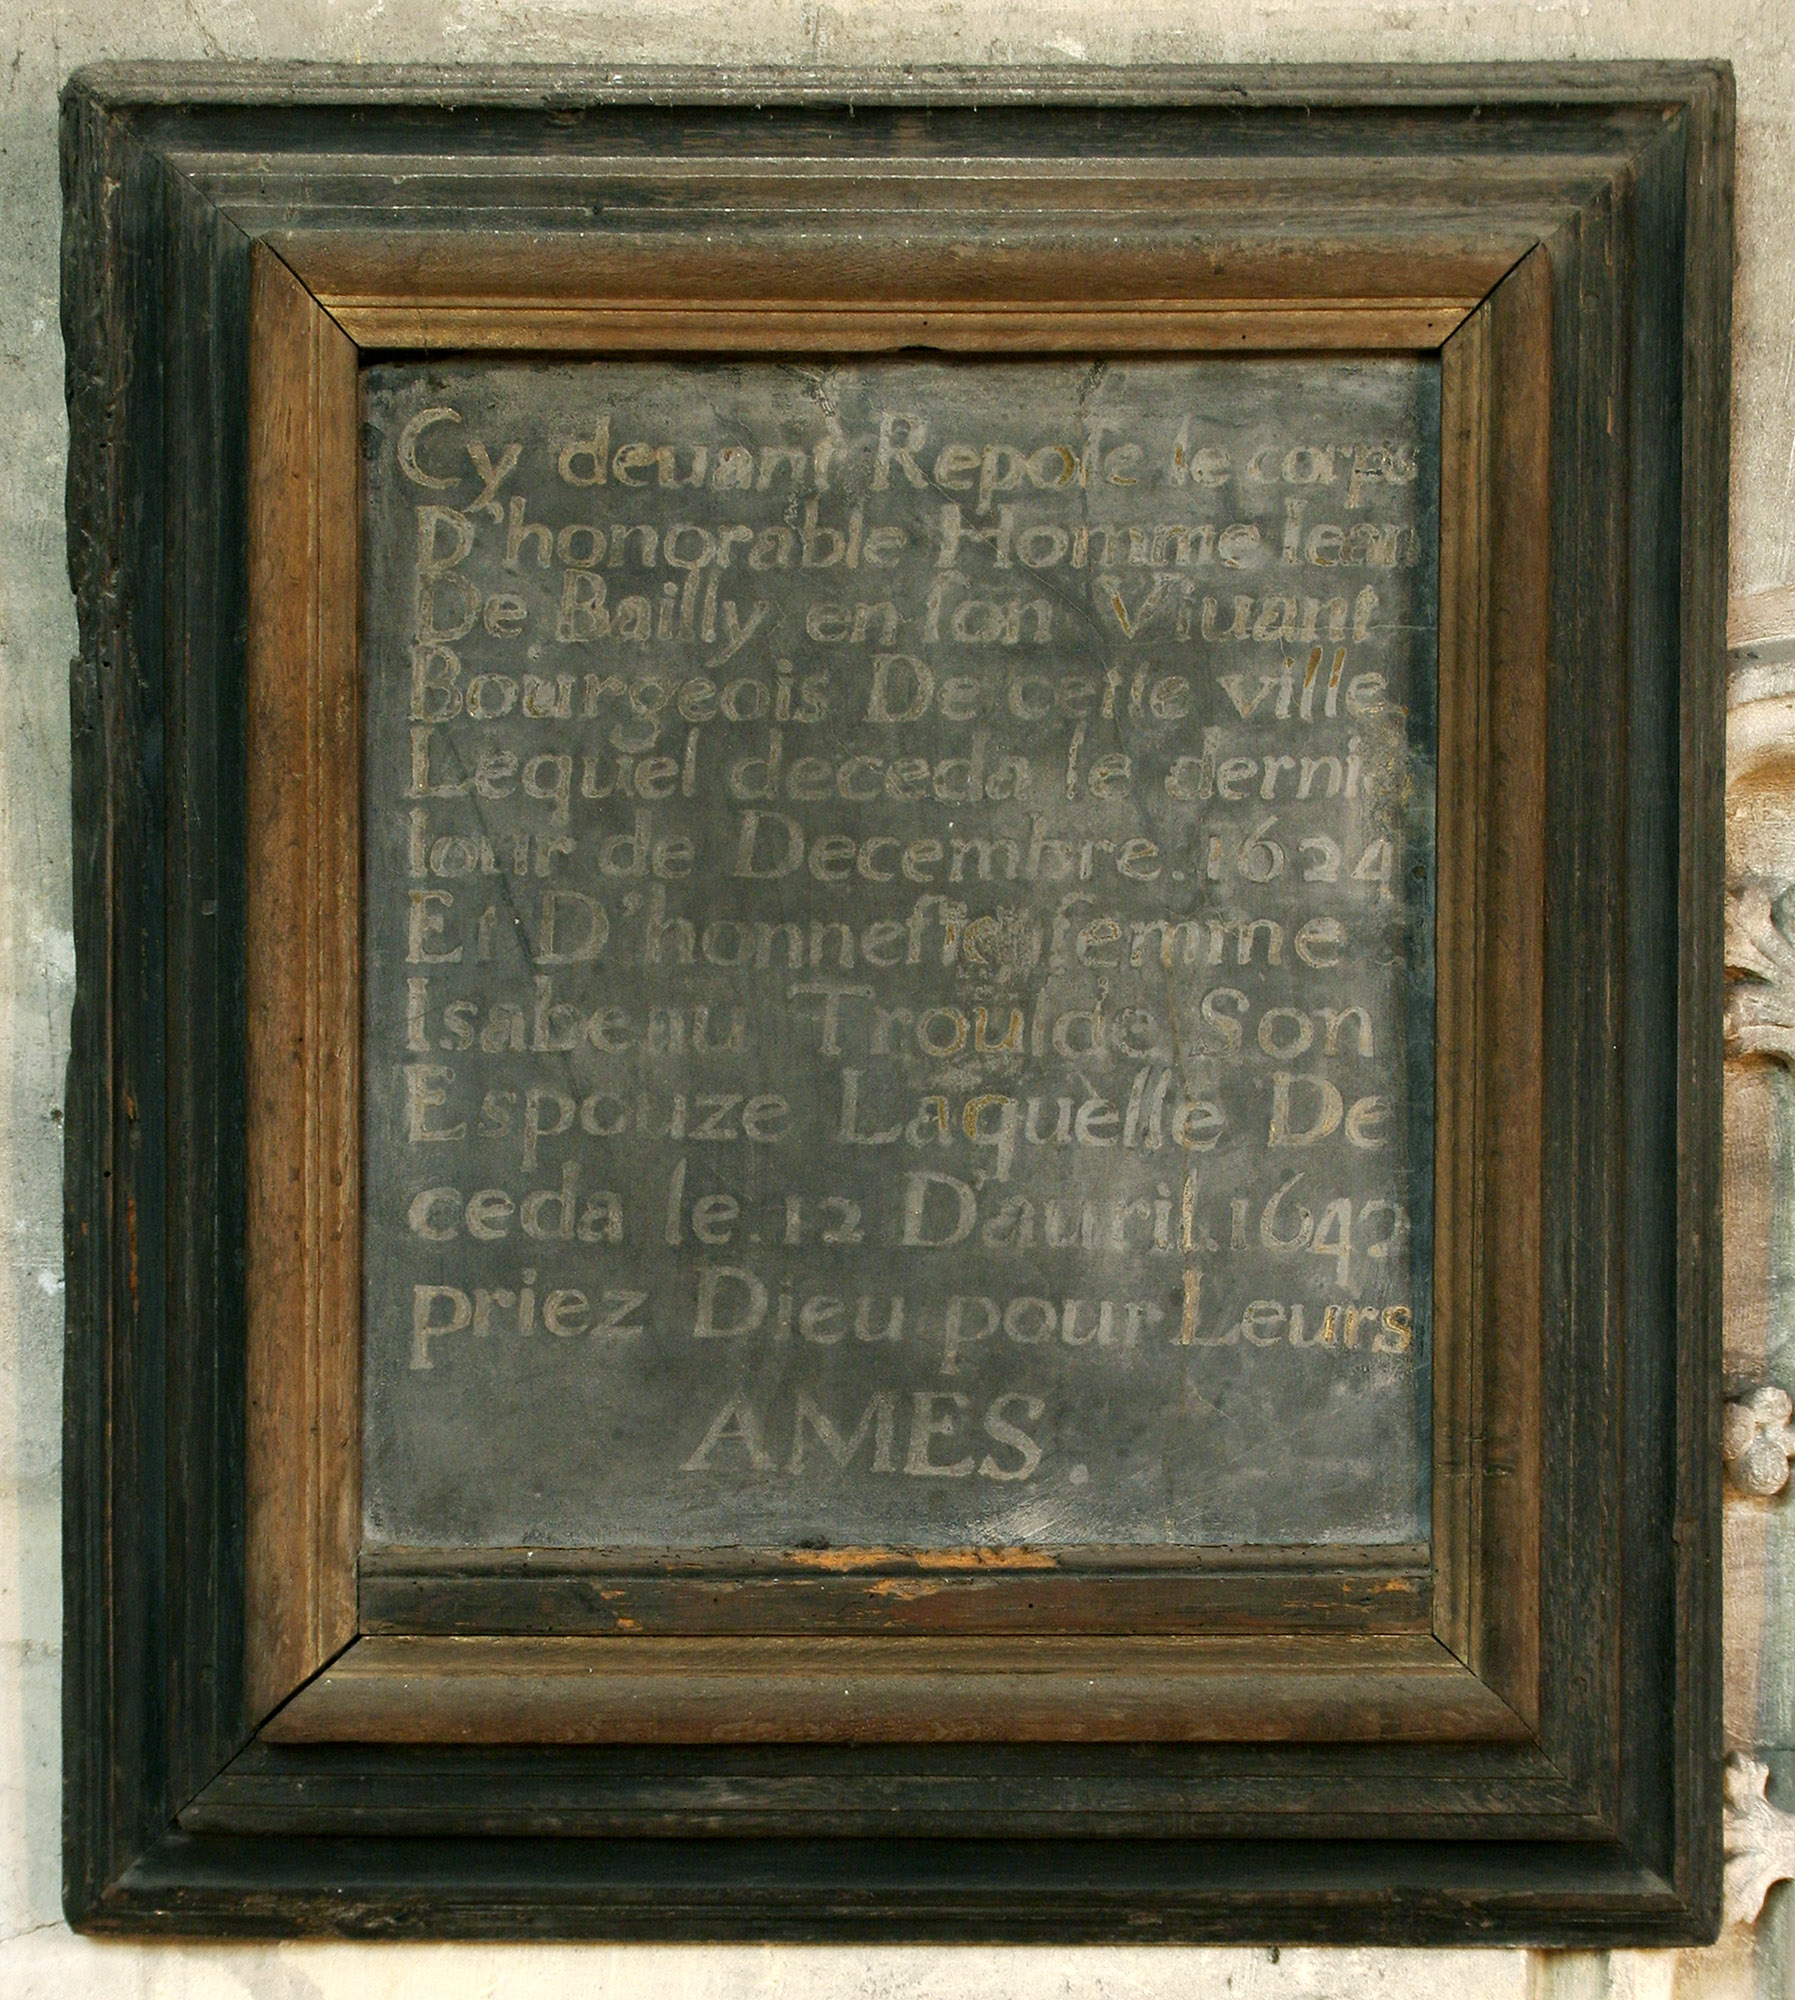 Cy deuant Repoſe le corps
D'honorable Homme Iean
De Bailly en ſon Viuant
Bourgeois De cette ville
Lequel deceda le dernier
Iour de Decembre. 1624
Et D'honneſte femme
Isabeau Trouſde Son
Espouze Laquelle De
ceda le. 12 D'auril. 1642
priez Dieu pour Leurs
AMES.